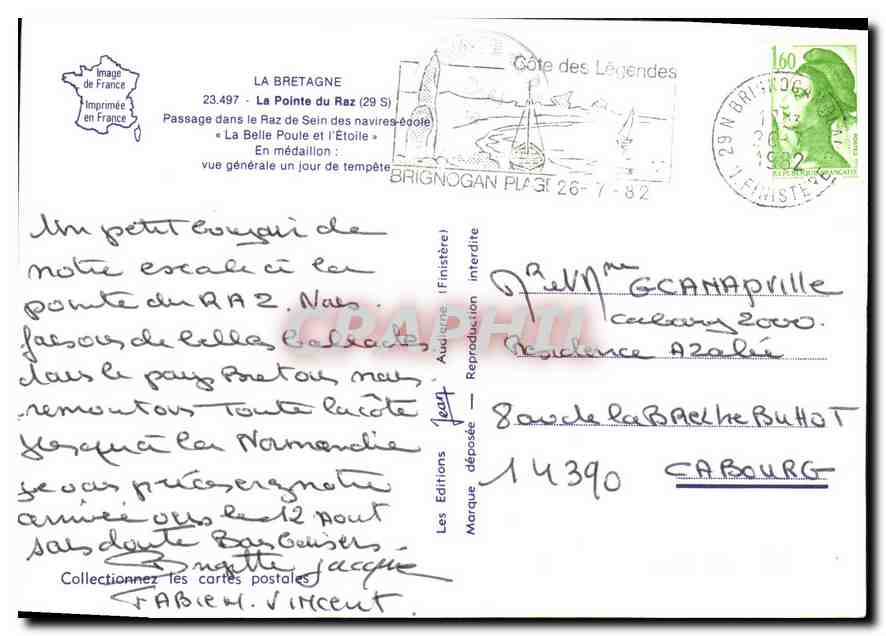 Image
de France
Imprimée
en France
LA BRETAGNE
23.497 - La Pointe du Raz (29 S)
Passage dans le Raz de Sein des navires-école
« La Belle Poule et l'Étoile »
En médaillon :
vue générale un jour de tempête
Côte des Légendes
BRIGNOGAN PLAGE 26-7-82
1,60
REPUBLIQUE FRANÇAISE
29 N BRIGNOGAN
1982
FINISTERE
Un petit bonjour de
notre escale à la
pointe du RAZ. Nous
faisons de belles ballades
dans le pays Breton nous
remontons toute la côte
jusqu'à la Normandie
je vous préciserez notre
arrivée vers le 12 Aout
sans doute Bons baisers
Brigitte Jacques
FABIEN. VINCENT.
Collectionnez les cartes postales
Les Editions Jean Audierne (Finistère)
Marque déposée — Reproduction interdite
Mr et Mme G CANAPVILLE
Cabourg 2000.
Résidence Azalée
8 av de la BRECHE BUHOT
14390 CABOURG
CPAPHIL